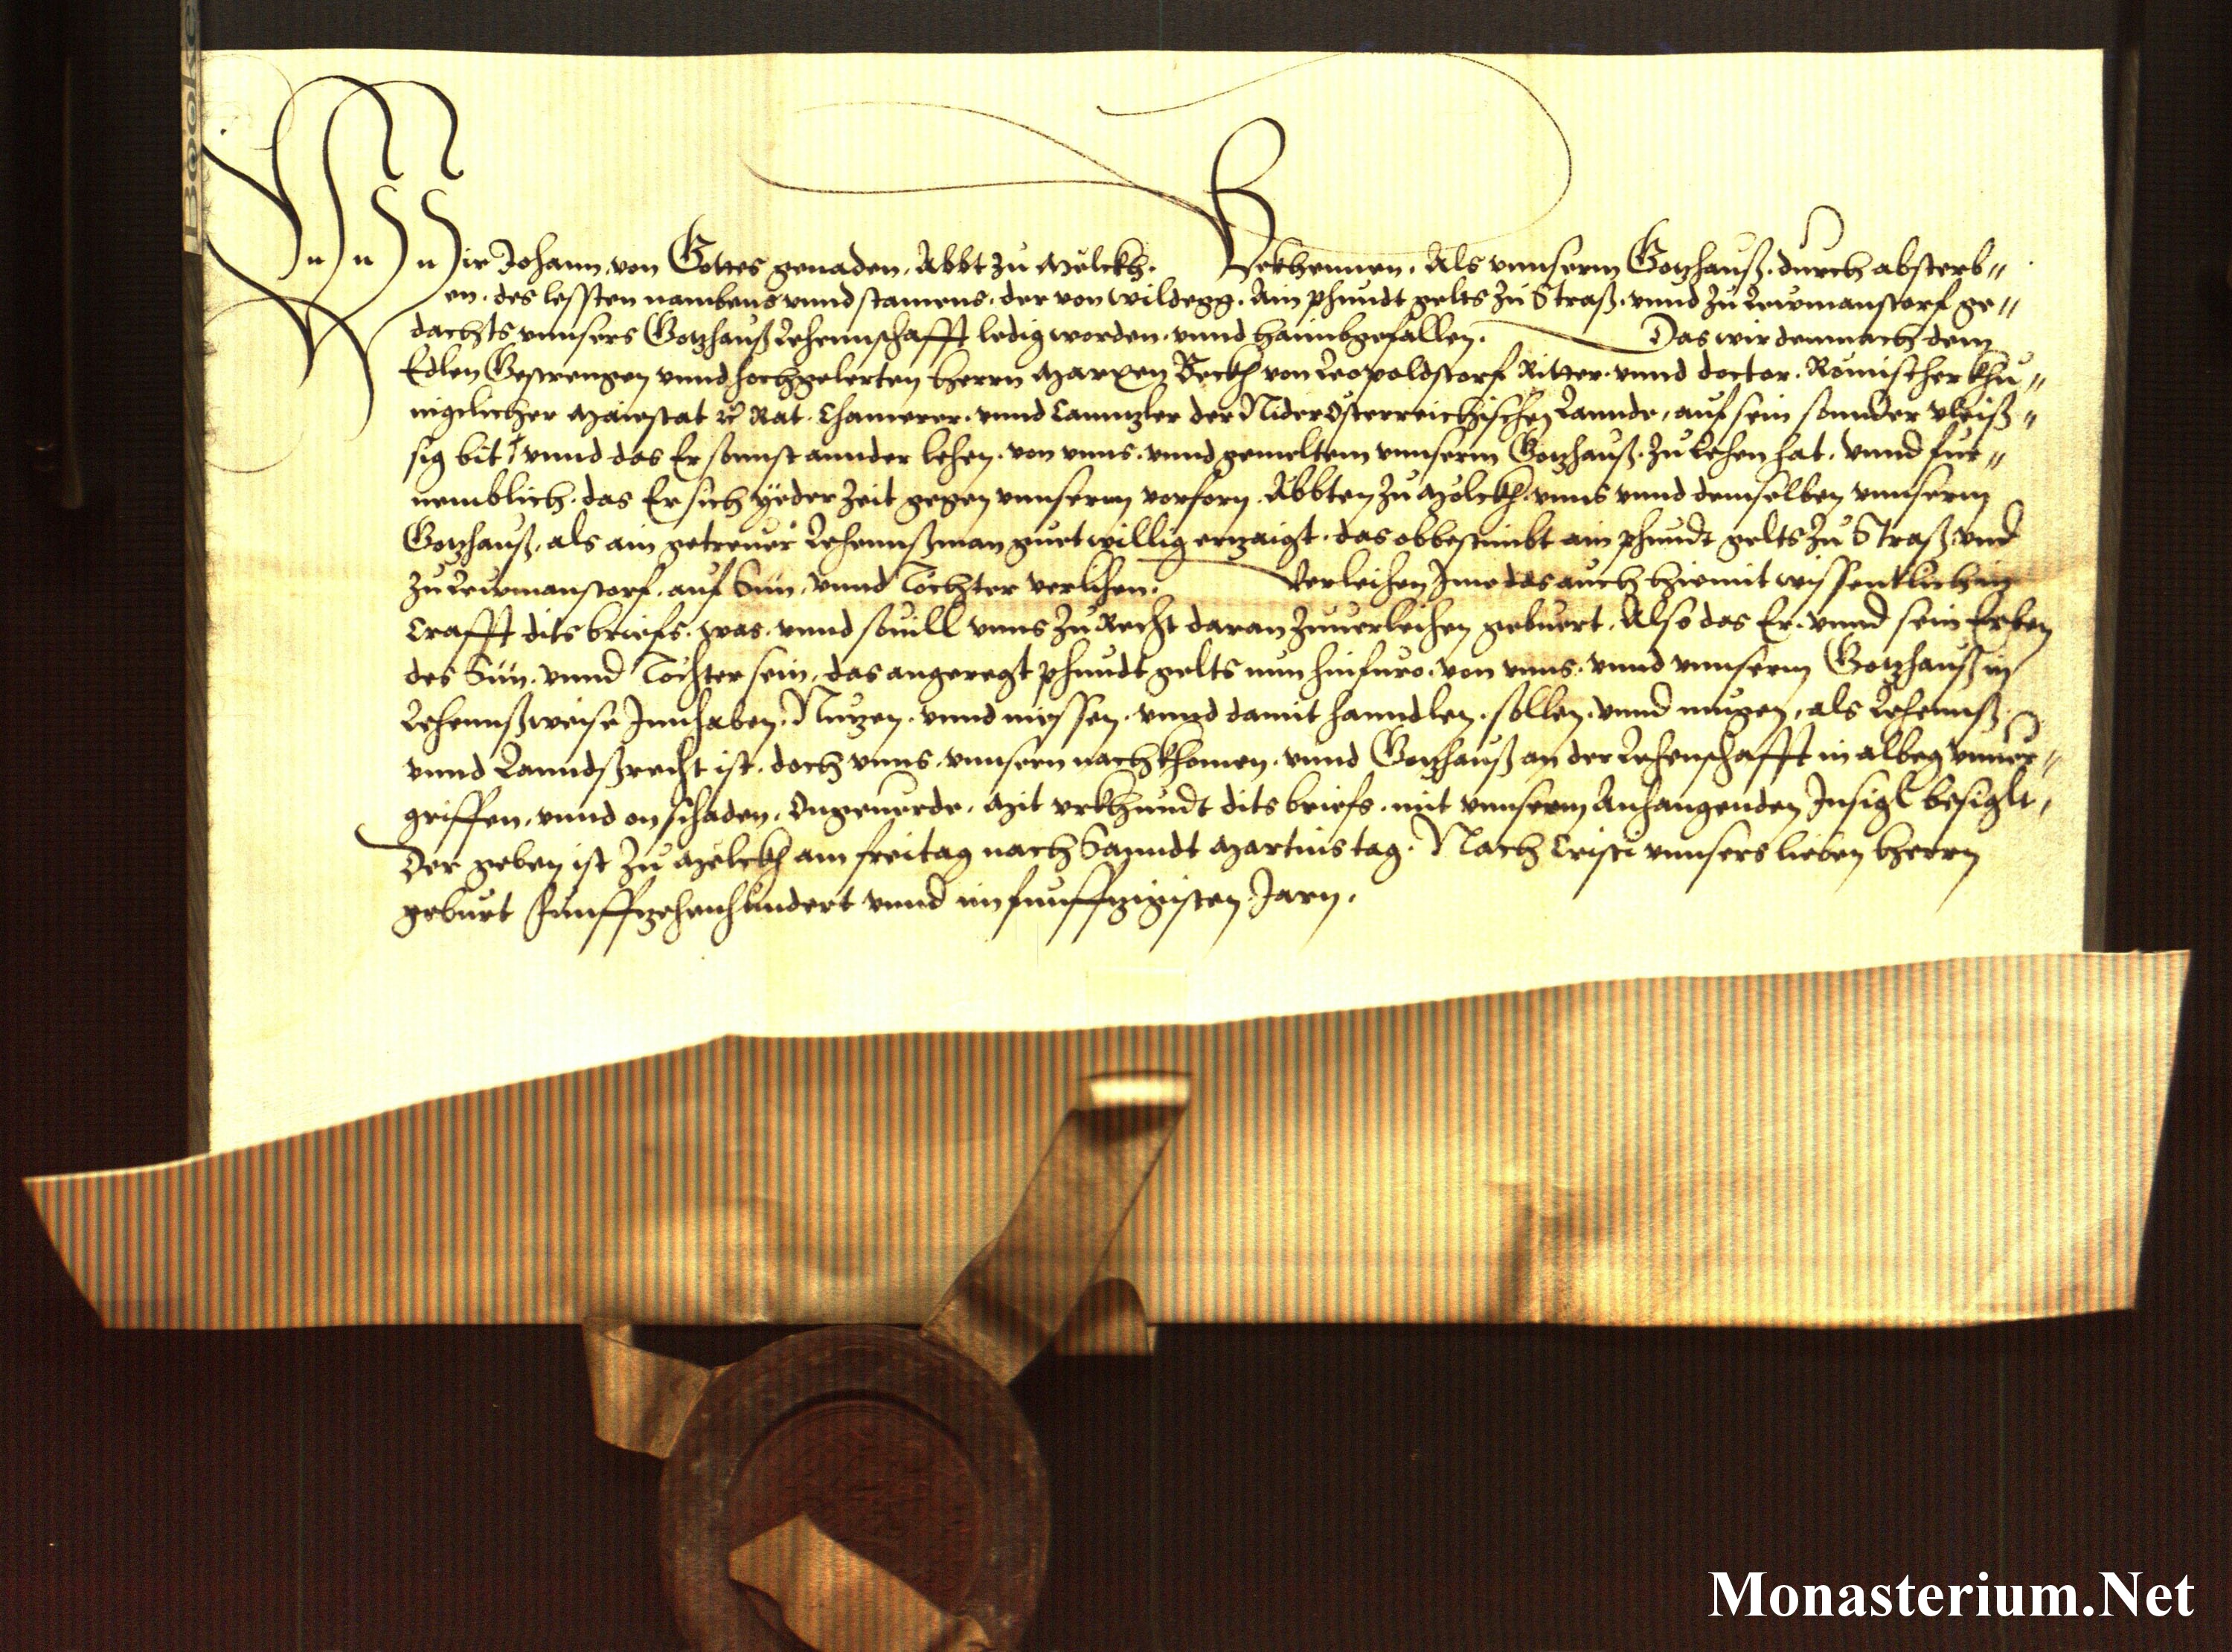 Wir Johann, von Gottes genaden, Abbt zu Mëlckh. Bekhennen, Als vnnserm Gotzhauß, durch absterb„
en, des lessten nambens vnnd stamens, der von Wildegg, Ain phundt gelts zu Straß, vnnd zu Lewmanstorf ge„
dachts vnnsers Gotzhauß Lehennschafft ledig worden, vnnd haimbgefallen. Das wir demnach dem
Edlen Gestrengen vnnd hochgelerten herrn Marxen Beckh von Leopoldstorf Ritter, vnnd doctor, Römischer Khu„
nigclicher Maiestat rc Rat, Chamerer, vnnd Canntzler der NiderÖsterreichischen Lannde, auf sein sonnder vleiß„
sig bit, vnnd das Er sonnst annder lehen, von vnns, vnnd gemeltem vnnserm Gotzhauß, zu Lehen hat, vnnd fur„
nemblich, das Er sich yeder zeit gegen vnnserm vorforn, Äbbten zu Mölckh, vnns vnnd demselben vnnserm
Gotzhauß, als ain getreuer Lehennßman guetwillig ertzaigt, das obbestimbt ain phundt gelts zu Straß, vnd
zu Lewmanstorf, auf Sün, vnnd Töchter verlihen. Verleihen Ime das auch hiemit wissentlich in
Crafft dits briefs, was, vnnd souill vnns zu Recht daran zuuerleihen gebuert, Also das Er, vnnd sein Erben
des Sün, vnnd Töchter sein, das angeregt phundt gelts nun hinfuro, von vnns, vnnd vnnserm Gotzhauß in
Lehennßweise Innhaben, Nutzen, vnnd niessen, vnnd damit hanndlen, sollen, vnnd mugen, als Lehennß,
vnnd Lanndßrecht ist, doch vnns, vnnsern nachkhomen, vnnd Gotzhauß an der Lehenschafft in albeg vnuer„
griffen, vnnd on schaden, Ongeuerde, Mit vrkhundt dits briefs, mit vnnserm Anhangenden Insigl besiglt,
Der geben ist zu Melckh am freitag nach Sanndt Martins tag, Nach Cristi vnnsers lieben herrn
geburt Funffzehenhundert vnnd im funffzigisten Jarn.
Monasterium.Net